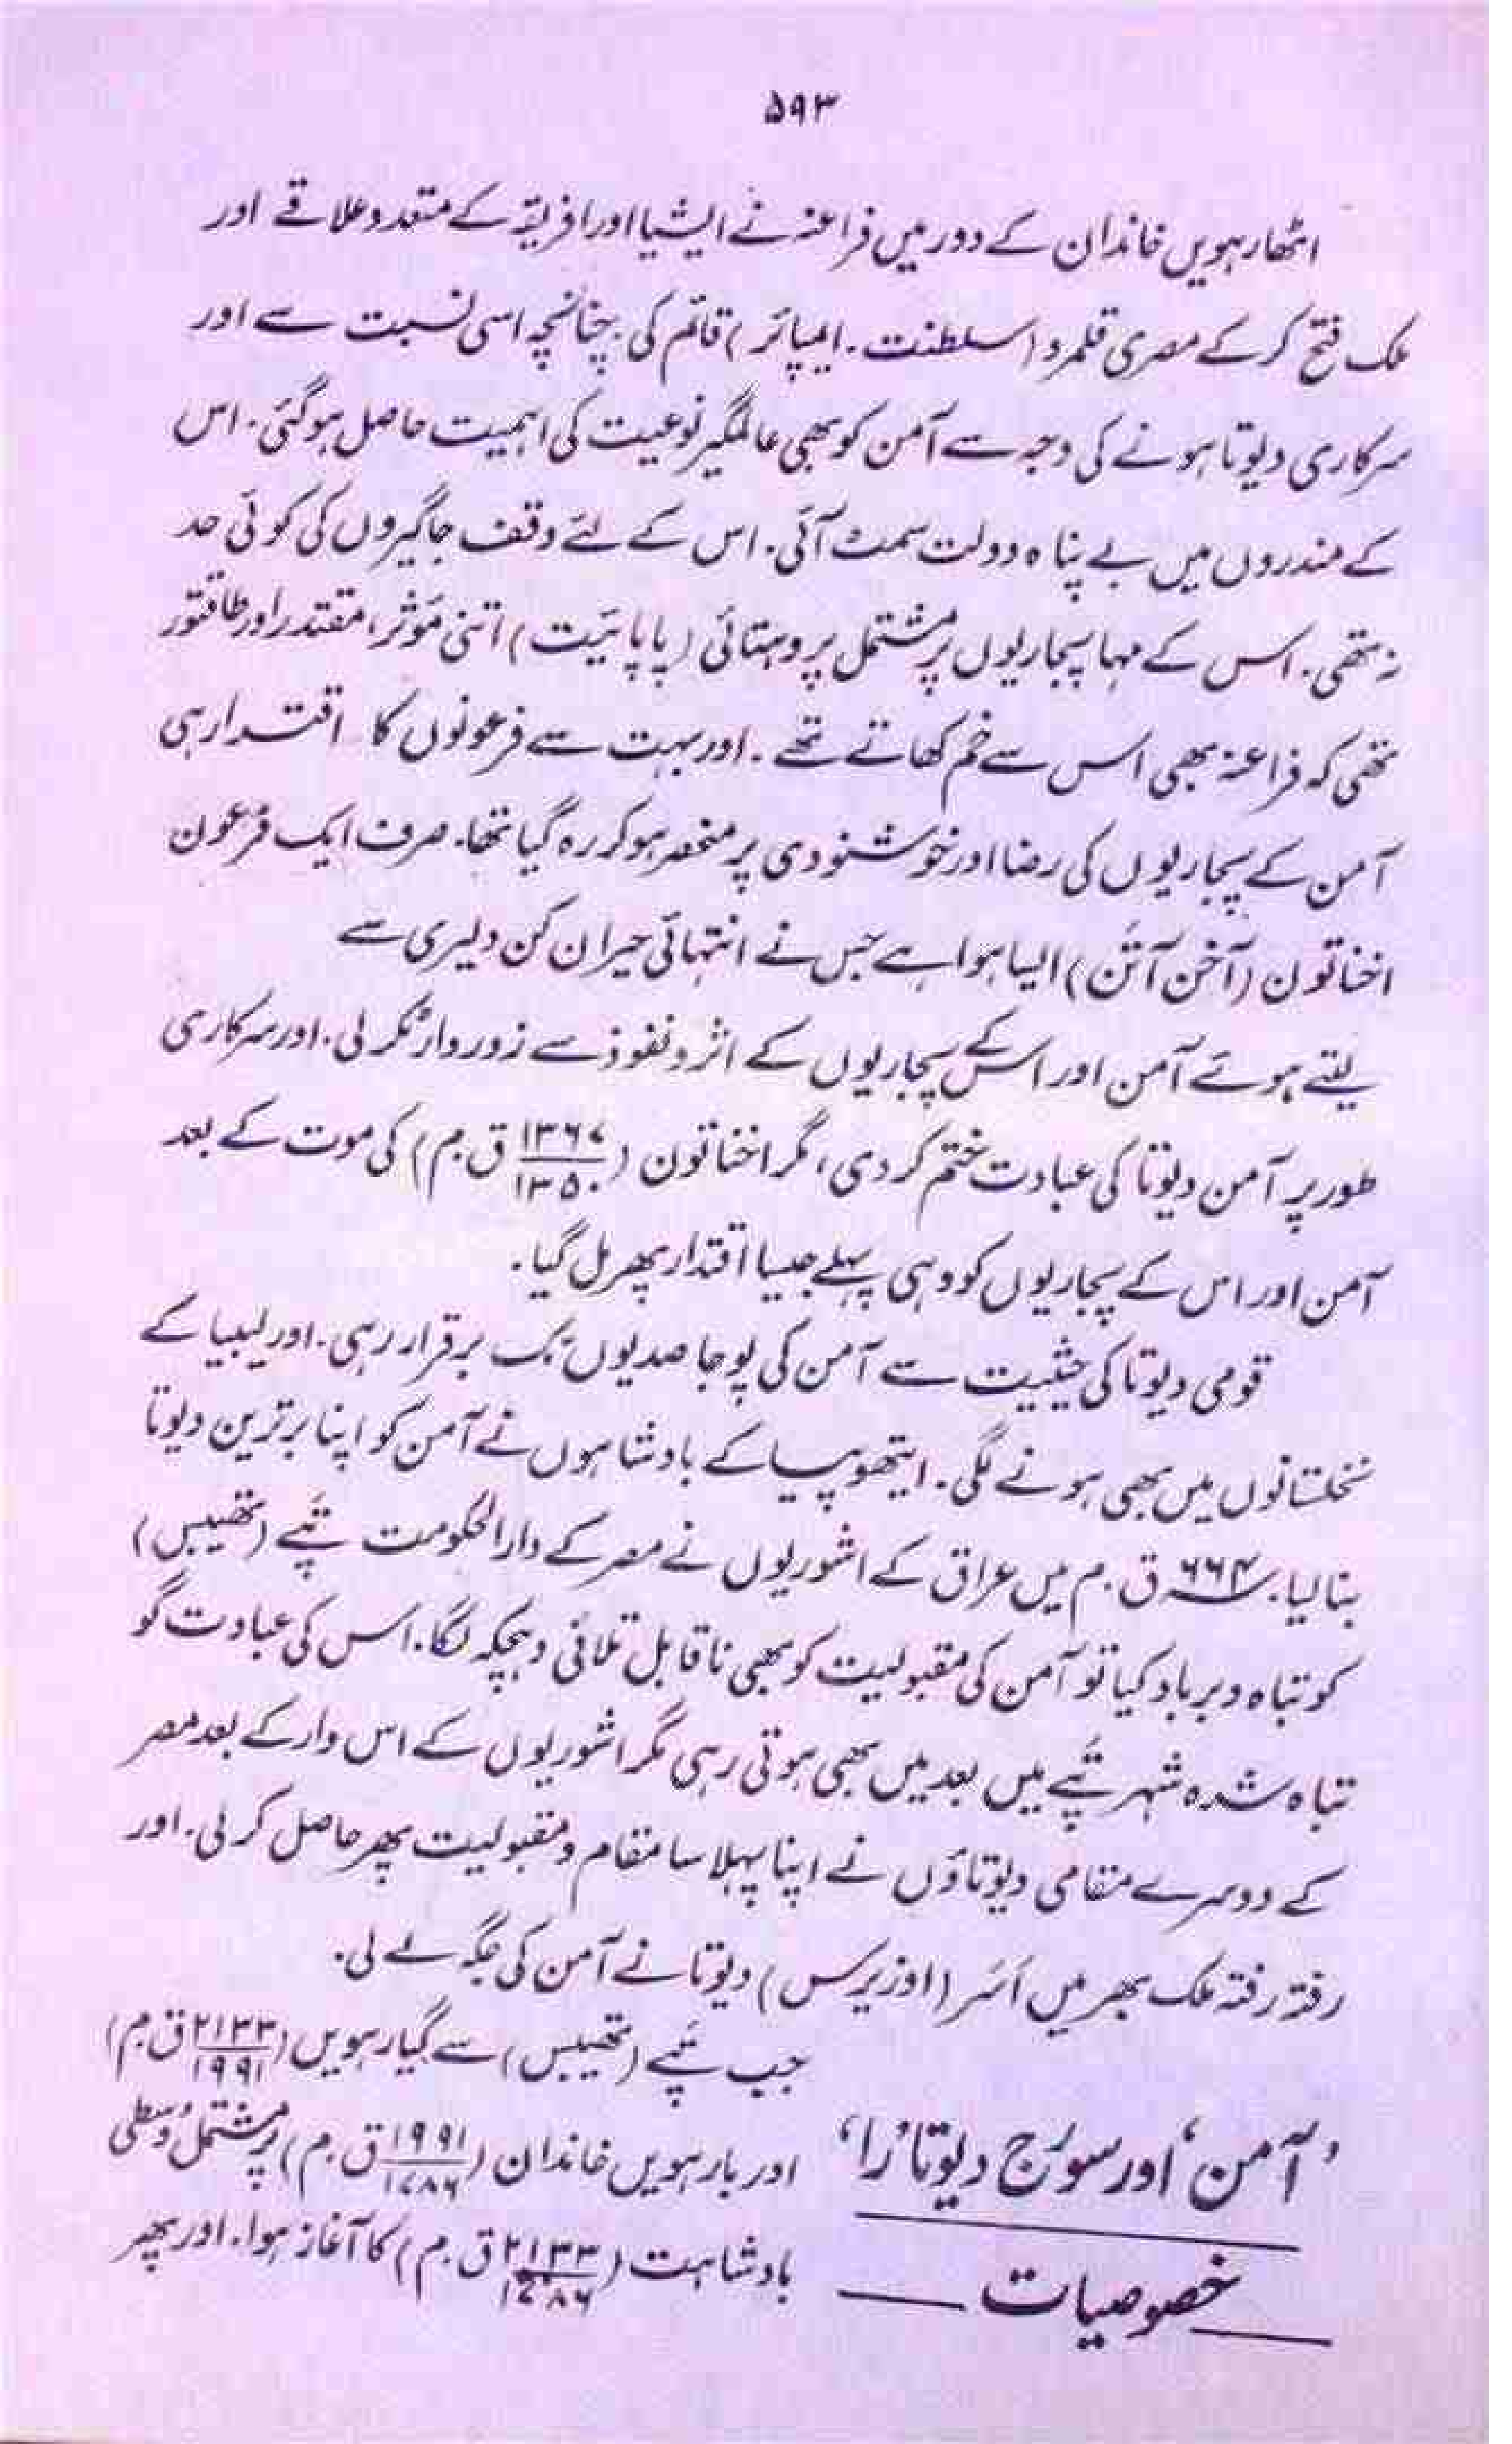 ۵۹۳
اٹھارہویں خاندان کے دور میں فراعنہ نے ایشیا اور افریقہ کے متعدد علاقے اور
ملک فتح کر کے مصری قلمرو (سلطنت۔ ایمپائر) قائم کی۔ چنانچہ اسی نسبت سے اور
سرکاری دیوتا ہونے کی وجہ سے آمن کو بھی عالمگیر نوعیت کی اہمیت حاصل ہوگئی۔ اس
کے مندروں میں بے پناہ دولت سمٹ آئی۔ اس کے لئے وقف جاگیروں کی کوئی حد
نہ تھی۔ اس کے مہا پجاریوں پر مشتمل پروہتائی (پاپائیت) اتنی مؤثر، مقتدر اور طاقتور
تھی کہ فراعنہ بھی اس سے خم کھاتے تھے۔ اور بہت سے فرعونوں کا اقتدار ہی
آمن کے پجاریوں کی رضا اور خوشنودی پر منحصر ہو کر رہ گیا تھا۔ صرف ایک فرعون
اخناتون (آخن آتَن) ایسا ہوا ہے جس نے انتہائی حیران کن دلیری سے
لیتے ہوئے آمن اور اس کے پجاریوں کے اثر و نفوذ سے زوردار ٹکر لی۔ اور سرکاری
طور پر آمن دیوتا کی عبادت ختم کر دی، مگر اخناتون (۱۳۶۷/۱۳۵۰ ق۔م) کی موت کے بعد
آمن اور اس کے پجاریوں کو وہی پہلے جیسا اقتدار پھر مل گیا۔
قومی دیوتا کی حیثیت سے آمن کی پوجا صدیوں تک برقرار رہی۔ اور لیبیا کے
نخلستانوں میں بھی ہونے لگی۔ ایتھوپیا کے بادشاہوں نے آمن کو اپنا برترین دیوتا
بنا لیا۔ ۶۶۴ ق۔م میں عراق کے اشوریوں نے مصر کے دارالحکومت تَپے (تھیبس)
کو تباہ و برباد کیا تو آمن کی مقبولیت کو بھی ناقابل تلافی دھچکہ لگا۔ اس کی عبادت گو
تباہ شدہ شہر تَپے میں بعد میں بھی ہوتی رہی مگر اشوریوں کے اس وار کے بعد مصر
کے دوسرے مقامی دیوتاؤں نے اپنا پہلا سا مقام و مقبولیت پھر حاصل کر لی۔ اور
رفتہ رفتہ ملک بھر میں اَسَر (اوزیرس) دیوتا نے آمن کی جگہ لے لی۔
’آمن‘ اور سوُرج دیوتا ’را‘
خصوصیات
جب تَپے (تھیبس) سے گیارہویں (۲۱۳۳/۱۹۹۱ ق۔م)
اور بارہویں خاندان (۱۹۹۱/۱۷۸۶ ق۔م) پر مشتمل وُسطی
بادشاہت (۲۱۳۳/۱۷۸۶ ق۔م) کا آغاز ہوا۔ اور پھر